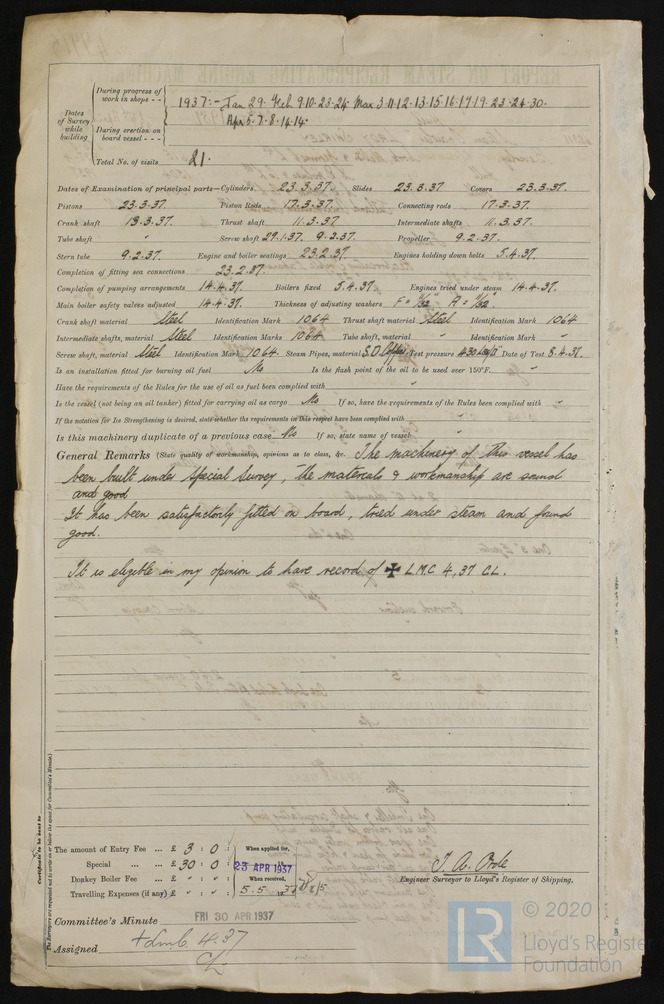 During progress of work in shops - - 1937:- Jan 29. Feb 9.10.23.24. Mar 3.11.12.13.15.16.17.19.23.24.30.
Dates of Survey while building
During erection on board vessel - - - Apr 5.7.8.14.14.
Total No. of visits 21.
Dates of Examination of principal parts—Cylinders. 23.3.37. Slides 23.3.37. Covers 23.3.37.
Pistons 23.3.37. Piston Rods 17.3.37. Connecting rods 17.3.37.
Crank shaft 13.3.37. Thrust shaft 11.3.37. Intermediate shafts 11.3.37.
Tube shaft " Screw shaft 29.1.37. 9.2.37. Propeller 9.2.37.
Stern tube 9.2.37. Engine and boiler seatings 23.2.37. Engines holding down bolts 5.4.37.
Completion of fitting sea connections 23.2.37
Completion of pumping arrangements 14.4.37. Boilers fixed 5.4.37. Engines tried under steam 14.4.37.
Main boiler safety valves adjusted 14.4.37. Thickness of adjusting washers
Crank shaft material Steel Identification Mark 1064 Thrust shaft material Steel Identification Mark 1064
Intermediate shafts, material Steel Identification Marks 1064 Tube shaft, material " Identification Mark "
Screw shaft, material Steel Identification Mark 1064. Steam Pipes, material S.D. Copper Test pressure 430 Date of Test 8.4.37.
Is an installation fitted for burning oil fuel No Is the flash point of the oil to be used over 150°F. "
Have the requirements of the Rules for the use of oil as fuel been complied with "
Is the vessel (not being an oil tanker) fitted for carrying oil as cargo No If so, have the requirements of the Rules been complied with "
If the notation for Ice Strengthening is desired, state whether the requirements in this respect have been complied with "
Is this machinery duplicate of a previous case No If so, state name of vessel "
General Remarks (State quality of workmanship, opinions as to class, &c. The machinery of this vessel has
been built under Special Survey, the materials & workmanship are sound
and good
It has been satisfactorily fitted on board, tried under steam and found
good.
It is eligible in my opinion to have record of ✠ L.M.C 4,37 CL.
Certificate to be sent to
(The Surveyors are requested not to write on or below the space for Committee's Minute.)
The amount of Entry Fee ... £ 3 : 0 : When applied for,
Special ... ... £ 30 : 0 : 23 APR 1937
Donkey Boiler Fee ... £ " : " : When received,
Travelling Expenses (if any) £ " : " : 5.5.1937
Engineer Surveyor to Lloyd's Register of Shipping.
Committee's Minute FRI 30 APR 1937
Assigned + Lmc 4.37
CL
LR © 2020
Lloyd's Register
Foundation